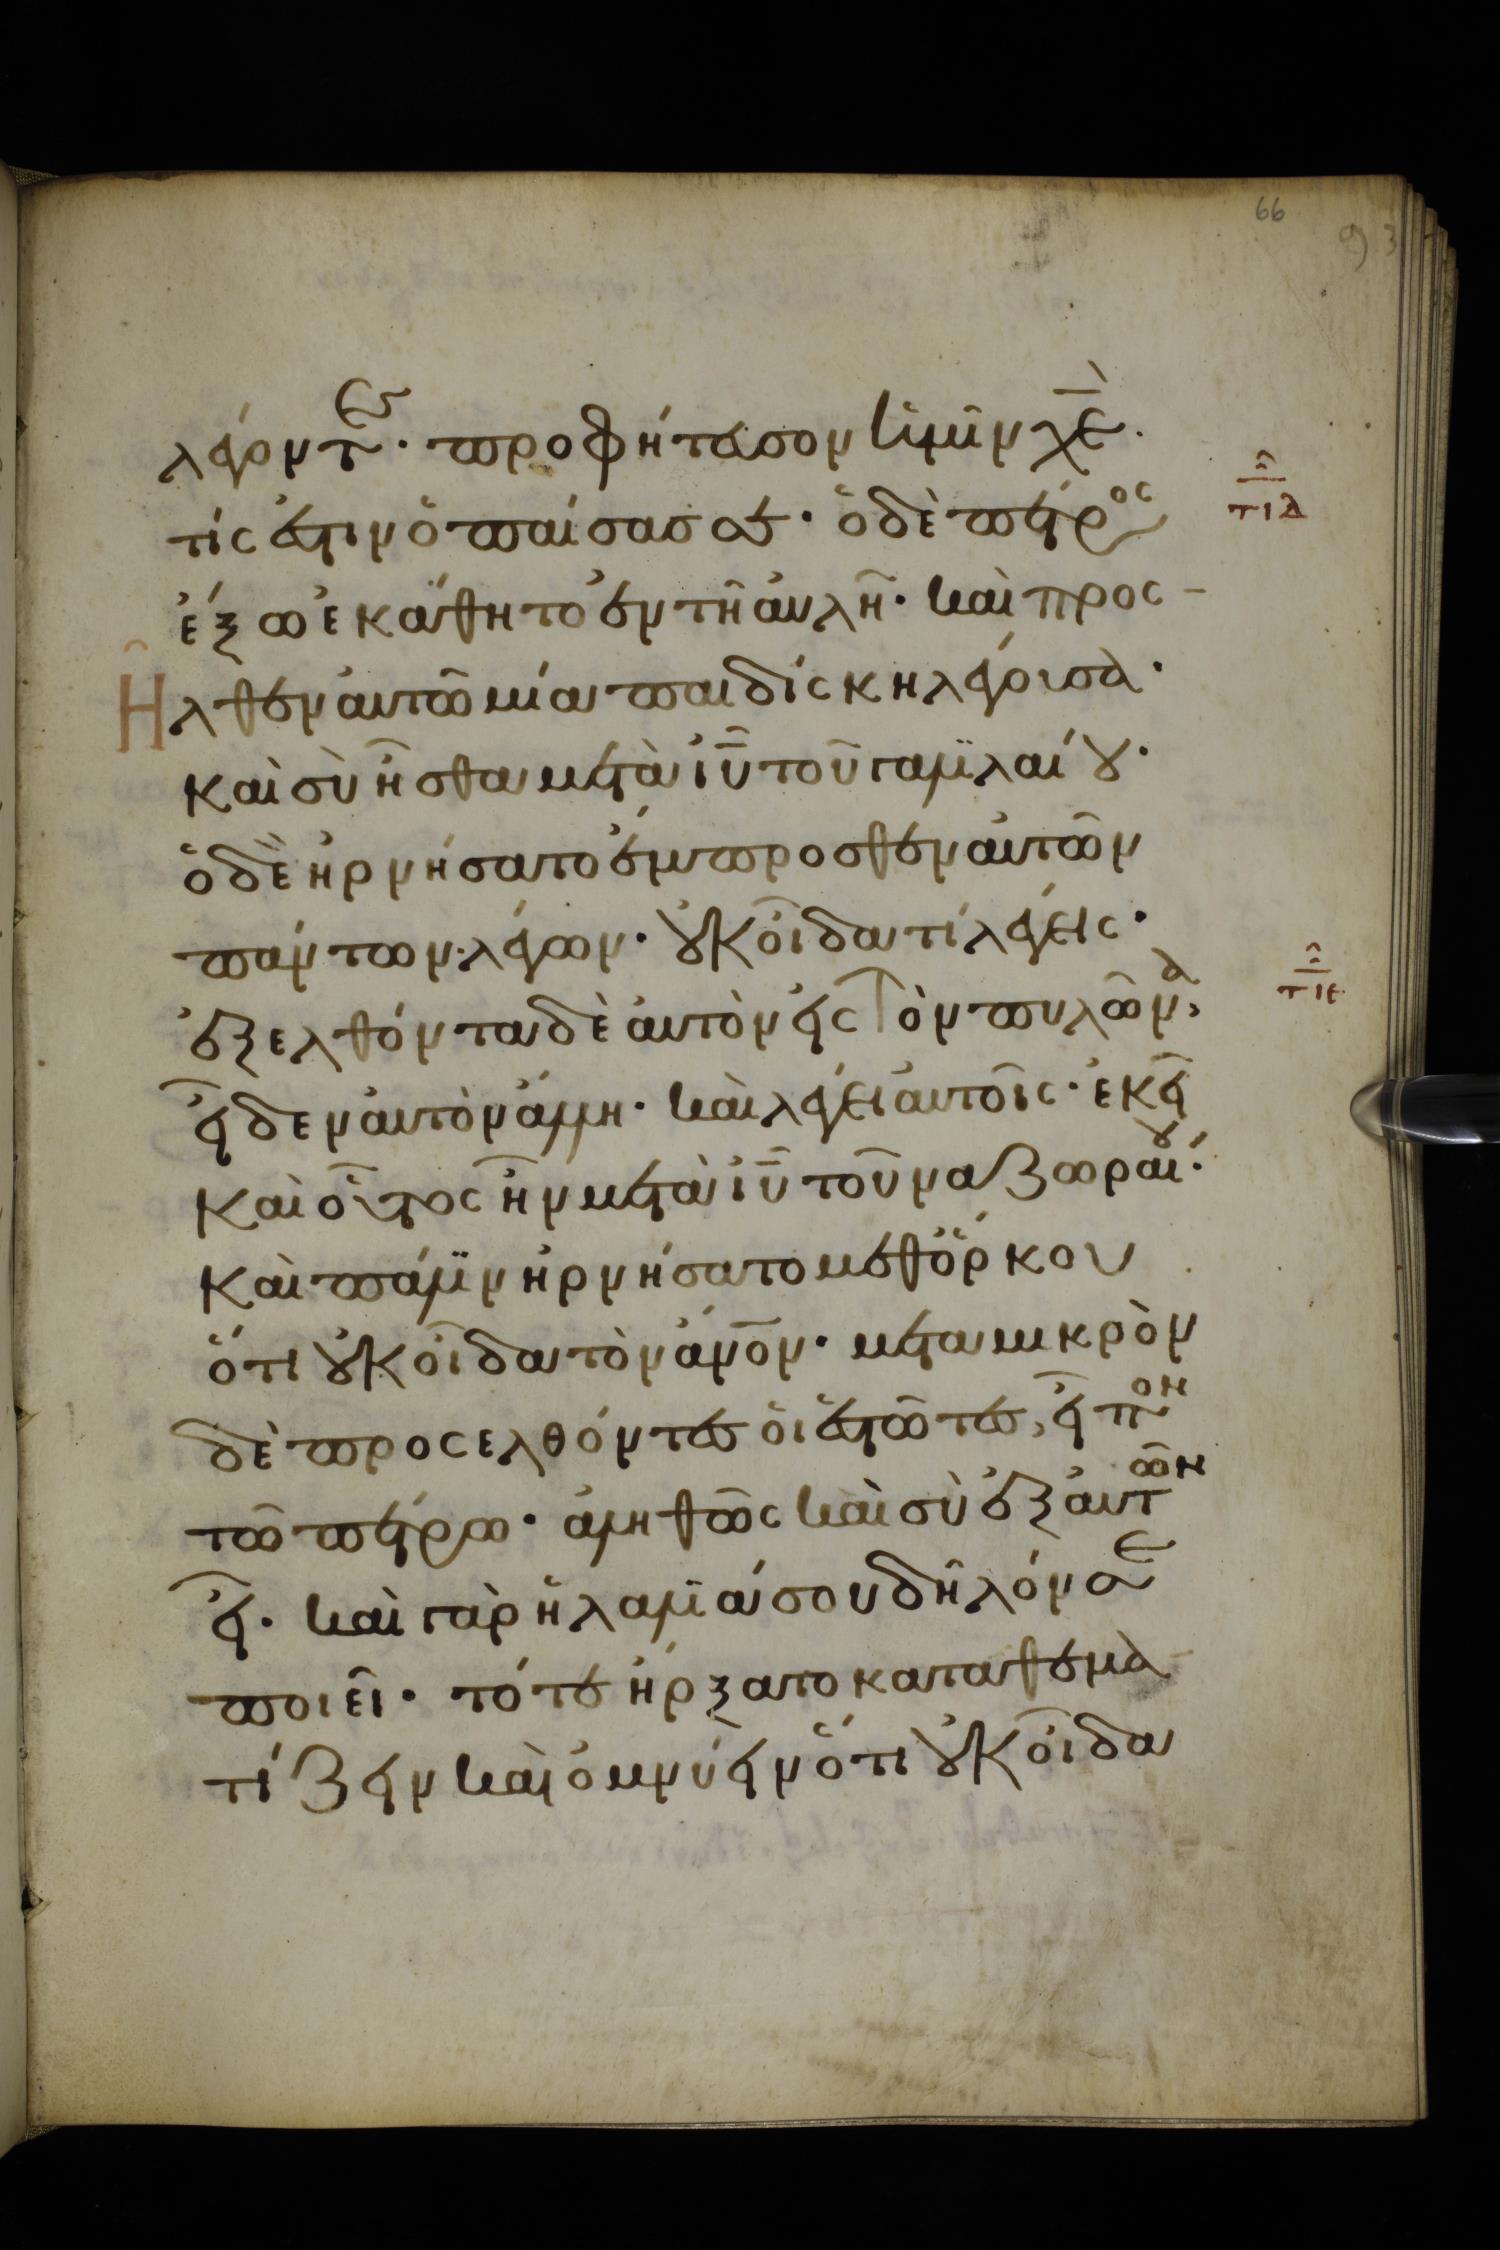 66
93
λέγοντες· προφήτευσον ἡμῖν χ̅ε̅.
τίς ἐστιν ὁ παίσας σε· ὁ δὲ πέτρος
τιδ
ἔξω ἐκάθητο ἐν τῆ αὐλῆ· καὶ προσ-
Ηλθεν αὐτῶ μία παιδίσκη λέγουσα·
καὶ σὺ ἦσθα μετὰ ι̅υ̅ τοῦ γαλιλαίου·
ὁ δὲ ἠρνήσατο ἔμπροσθεν αὐτῶν
πάντων λέγων· οὐκ οἶδα τί λέγεις·
ἐξελθόντα δὲ αὐτὸν εἰς τὸν πυλῶνα,
τιε
εἶδεν αὐτὸν ἄλλη· καὶ λέγει αὐτοῖς· ἐκεῖ
καὶ οὗτος ἦν μετὰ ι̅υ̅ τοῦ ναζωραίου·
καὶ πάλιν ἠρνήσατο μεθ ὅρκου
ὅτι οὐκ οἶδα τὸν α̅ν̅ο̅ν̅· μετα μικρὸν
δὲ προσελθόντες οἱ ἑστῶτες, εἶπον
τῶ πέτρω· ἀληθῶς καὶ σὺ ἐξ αὐτῶν
εἶ· καὶ γὰρ ἡ λαλιά σου δῆλόν σε
ποιεῖ· τότε ἤρξατο καταθεμα
τίζειν καὶ ὀμνύειν ὅτι οὐκ οἶδα